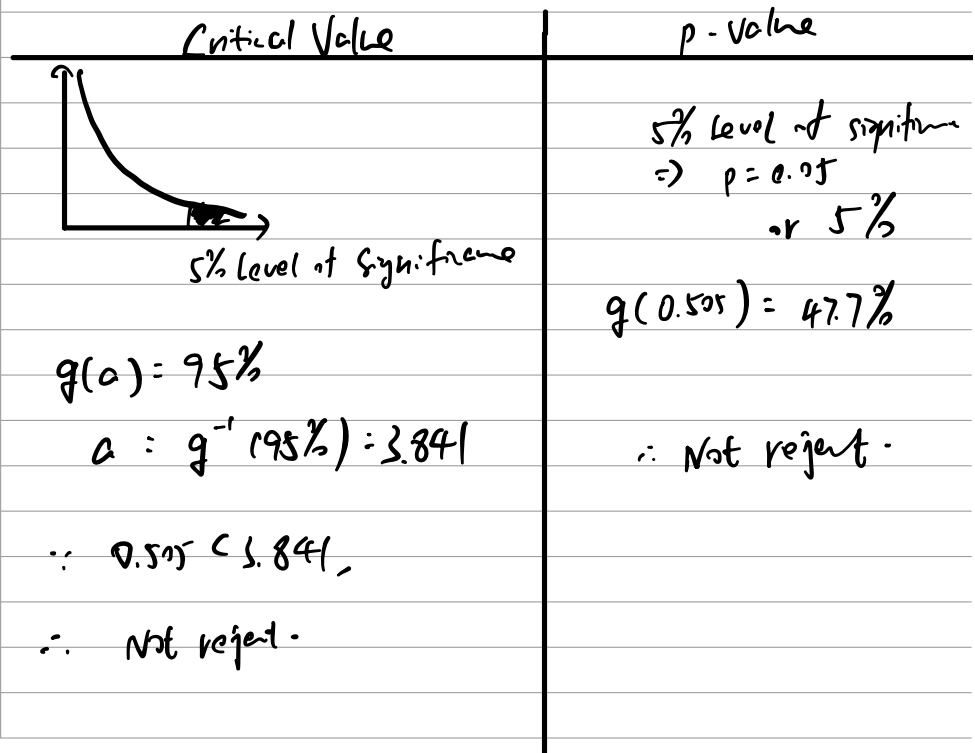 Critical Value
5% Level of Significance
g(a) = 95%
a = g⁻¹ (95%) = 3.841
∵ 0.505 < 3.841,
∴ Not reject.
p-value
5% Level of significance
=> p = 0.05
or 5%
g(0.505) = 47.7%
∴ Not reject.